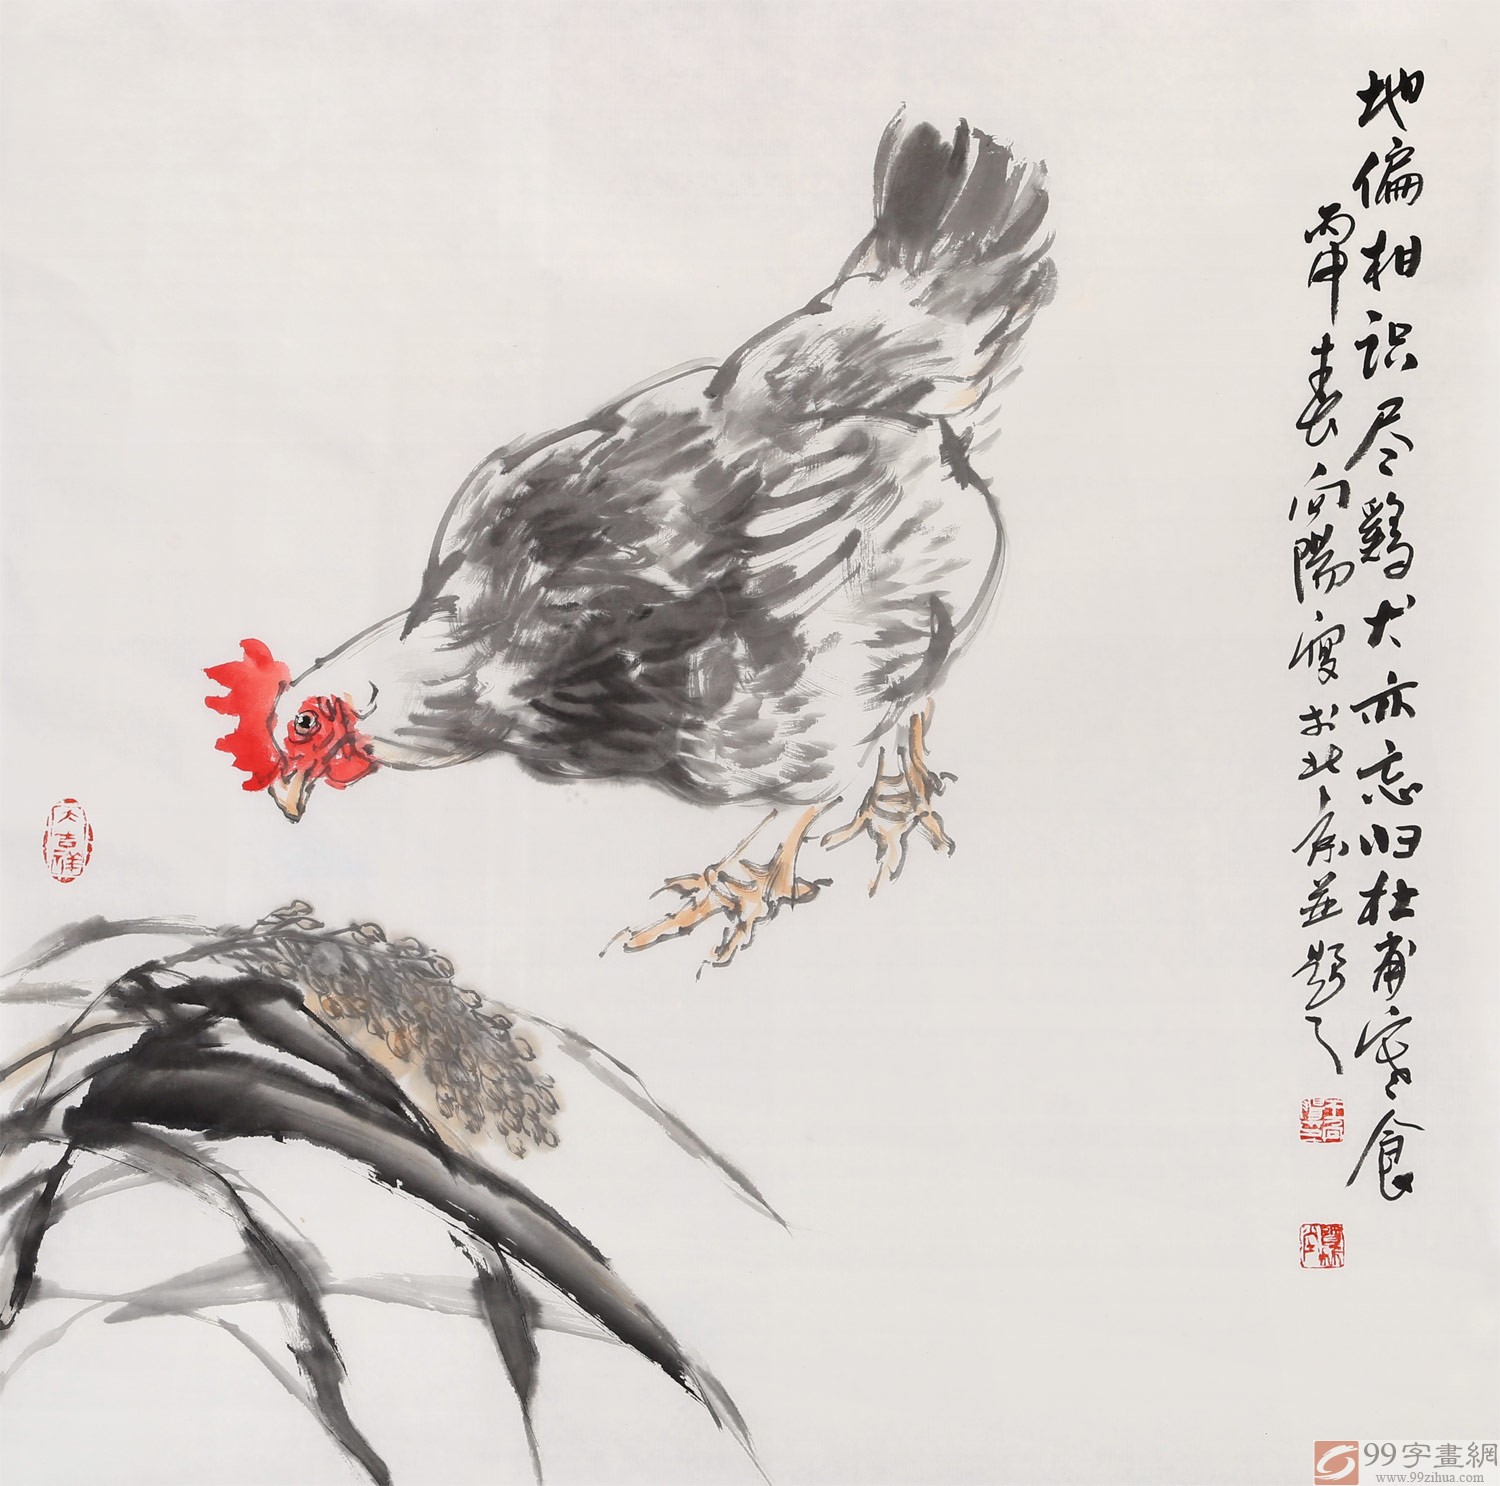 地偏相识尽鸡犬亦忘归杜甫寒食
丙申春向阳写于北京并题之
大吉祥
99字畫網
www.99zihua.com